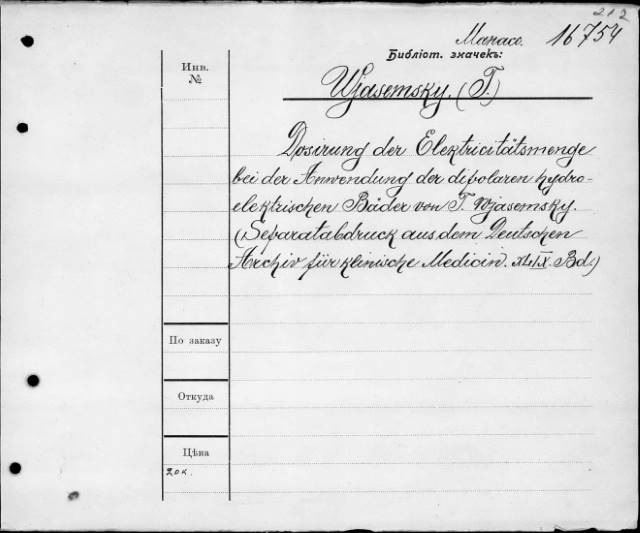 212
Манасс. 16754
Библіот. значекъ:
Инв.
№
Wjasemsky. (T.)
Dosirung der Elektricitätsmenge
bei der Anwendung der dipolaren hydro-
elektrischen Bäder von T. Wjasemsky.
(Separatabdruck aus dem Deutschen
Archiv für klinische Medicin. XLIX. Bd.)
По заказу
Откуда
Цѣна
20 к.